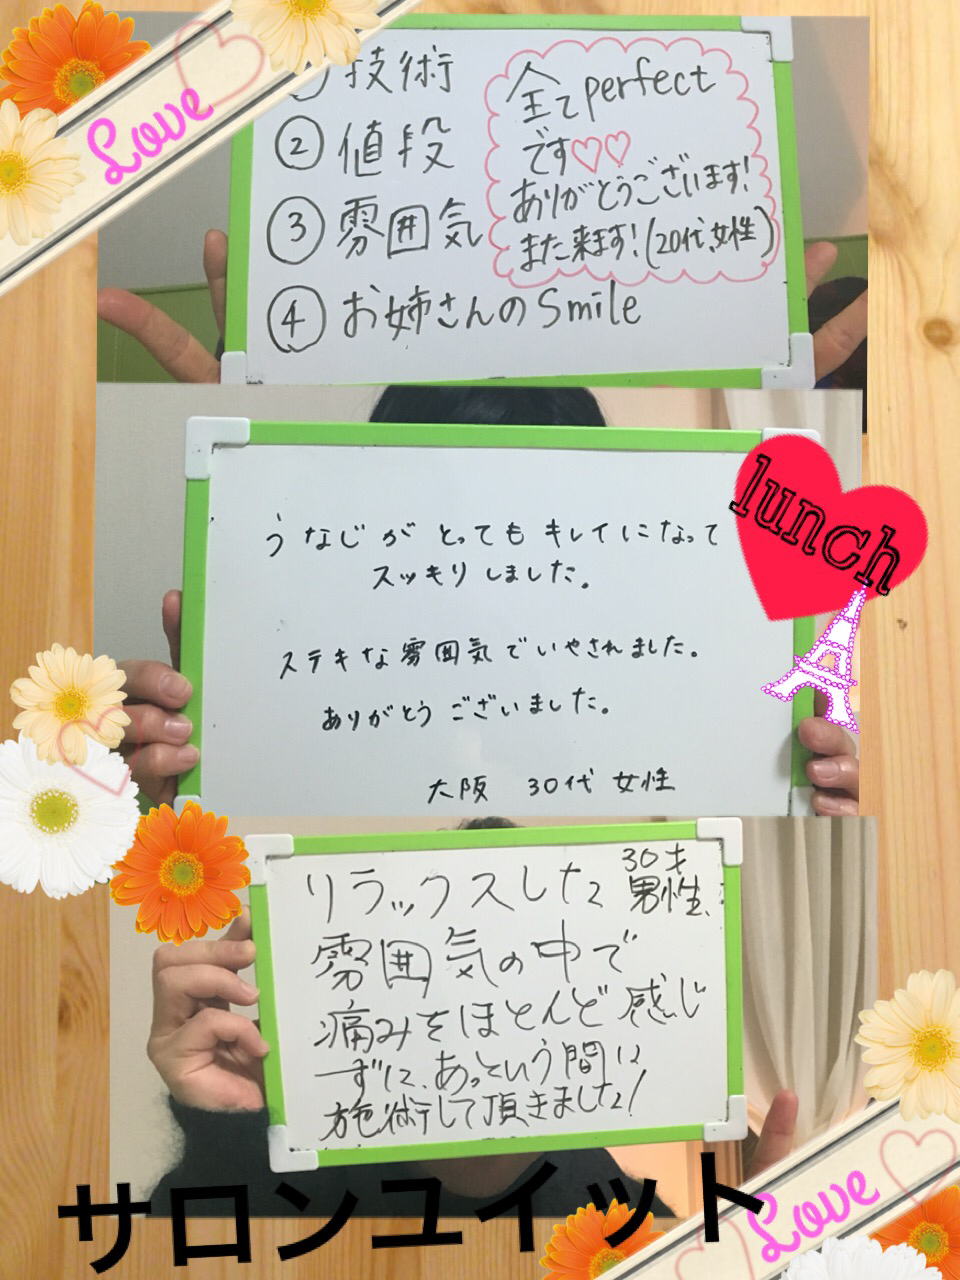 Love
技術
② 値段
③ 雰囲気
④ お姉さんのSmile
全てperfect
です♡♡
ありがとうございます!
また来ます!(20代、女性)
lunch
うなじが とっても キレイになって
スッキリしました。
ステキな雰囲気でいやされました。
ありがとう ございました。
大阪 30代 女性
30才
男性、
リラックスした
雰囲気の中で
痛みをほとんど感じ
ずに、あっという間に
施術して頂きました!
サロンユイット
Love